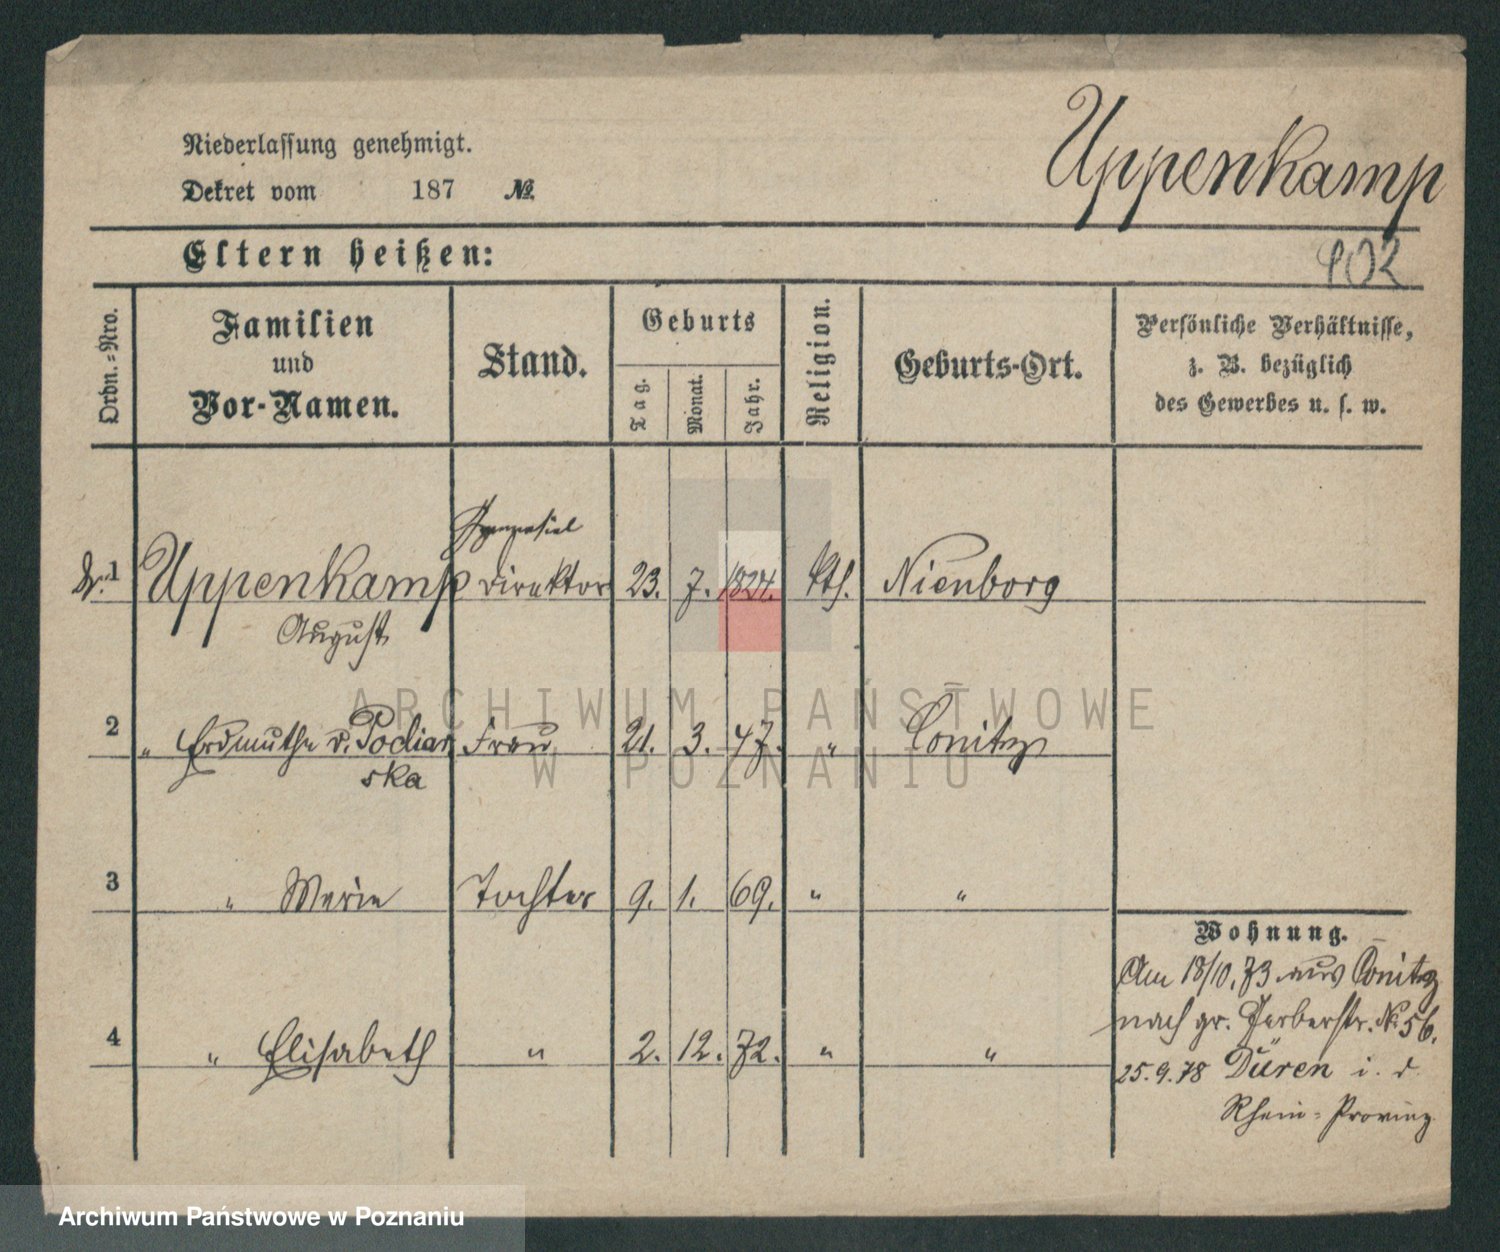 Niederlassung genehmigt.
Uppenkamp
Dekret vom 187 №.
Eltern heißen:
102
Ordn.=Nro.
Familien
und
Vor-Namen.
Stand.
Geburts
Tag.
Monat.
Jahr.
Religion.
Geburts-Ort.
Persönliche Verhältnisse,
z. B. bezüglich
des Gewerbes u. s. w.
Gymnasial
Dr. 1 Uppenkamp Direktor 23. 7. 1824. kth. Nienborg
August
ARCHIWUM PAŃSTWOWE
W POZNANIU
2 " Erdmuthe v. Podiar Frau 21. 3. 47. " Conitz
ska
3 " Marie Tochter 9. 1. 69. " "
Wohnung.
Am 18/10. 73 aus Conitz
nach gr. Gerberstr. № 56.
4 " Elisabeth " 2. 12. 72. " "
25.9.78 Düren i. d.
Rhein-Provinz
Archiwum Państwowe w Poznaniu